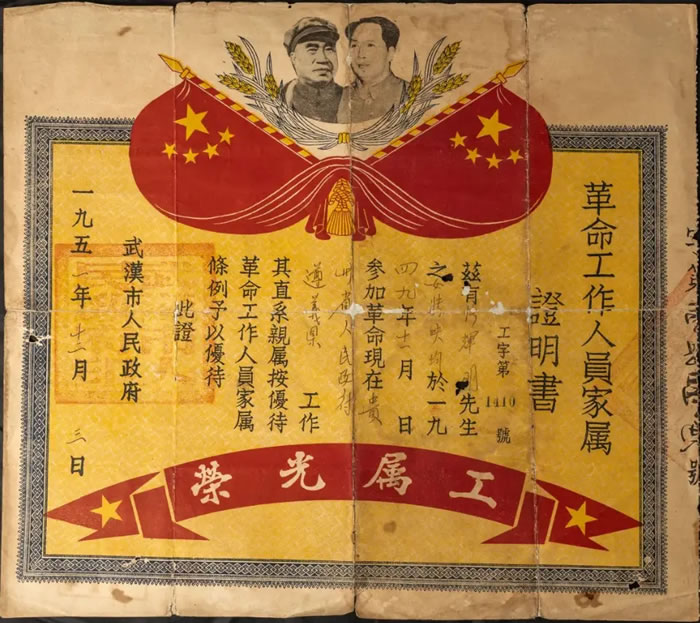 革命工作人員家属
證明書
工字第1410號
茲有 明先生
之女 於一九
四九年 月 日
參加革命現在貴
州省人民政府
遵義 工作
其直系親属按優待
革命工作人員家属
條例予以優待
此證
武漢市人民政府
一九五 年十二月三日
工属光榮
字第 號